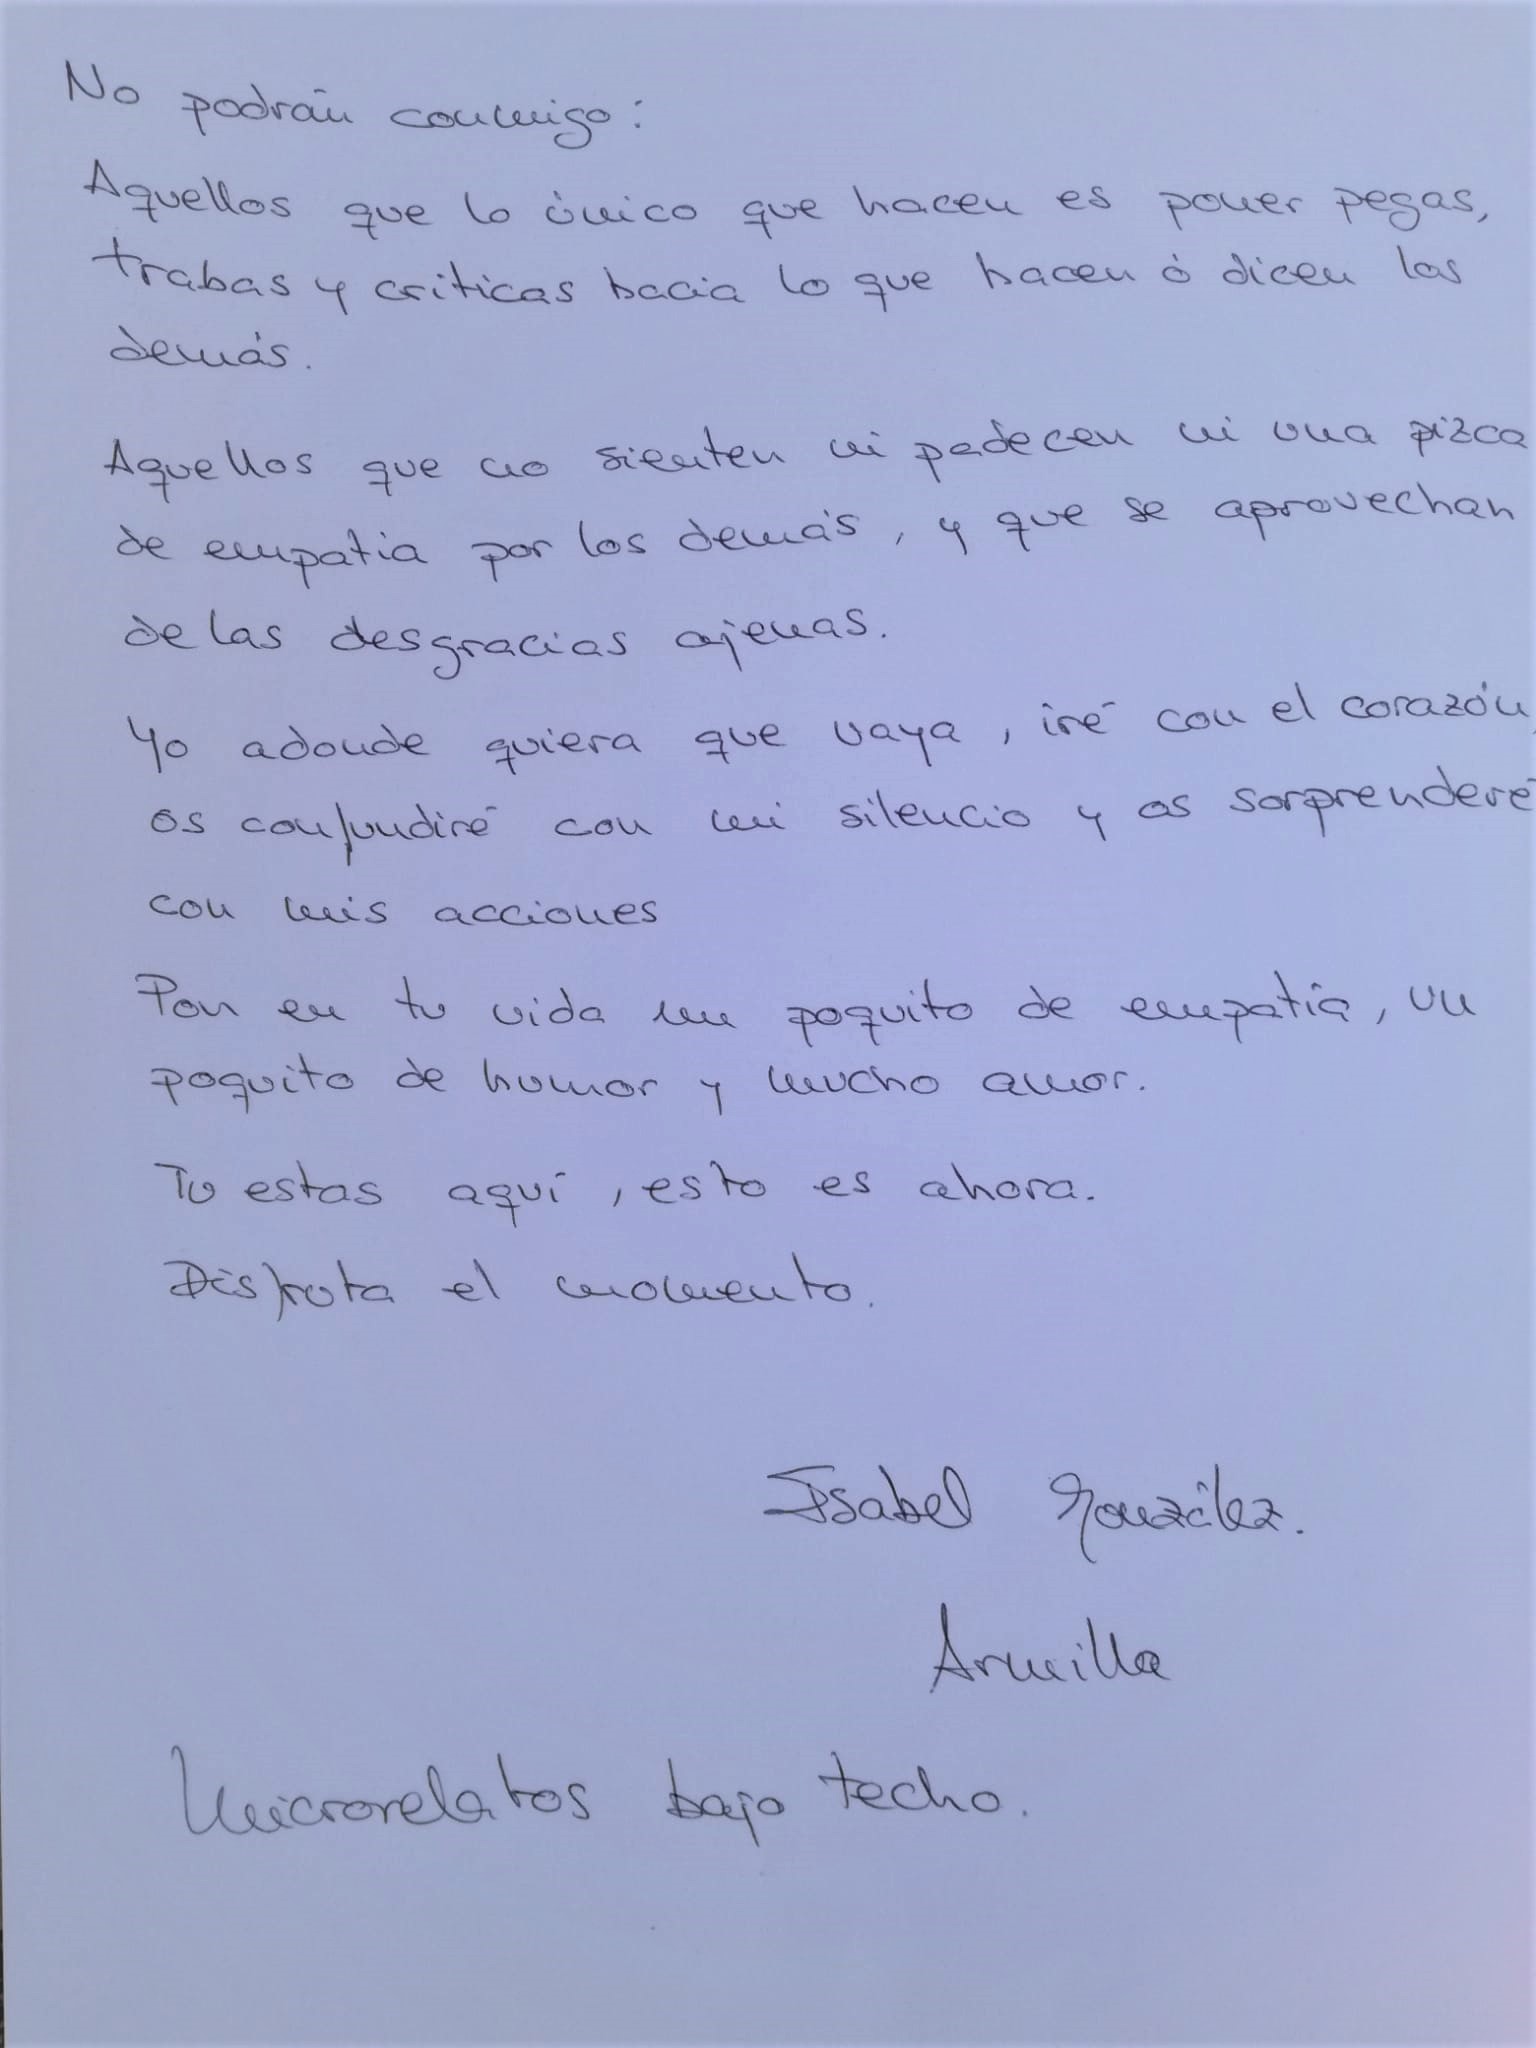 No podrán conmigo:
Aquellos que lo único que hacen es poner pegas,
trabas y criticas hacia lo que hacen ó dicen los
demás.
Aquellos que no sienten ni padecen ni una pizca
de empatia por los demás, y que se aprovechan
de las desgracias ajenas.
Yo adonde quiera que vaya, iré con el corazón,
os confundiré con mi silencio y os sorprenderé
con mis acciones
Pon en tu vida un poquito de empatía, un
poquito de humor y mucho amor.
Tu estas aquí, esto es ahora.
Disfruta el momento.
Isabel González.
Armilla
Microrelatos bajo techo.